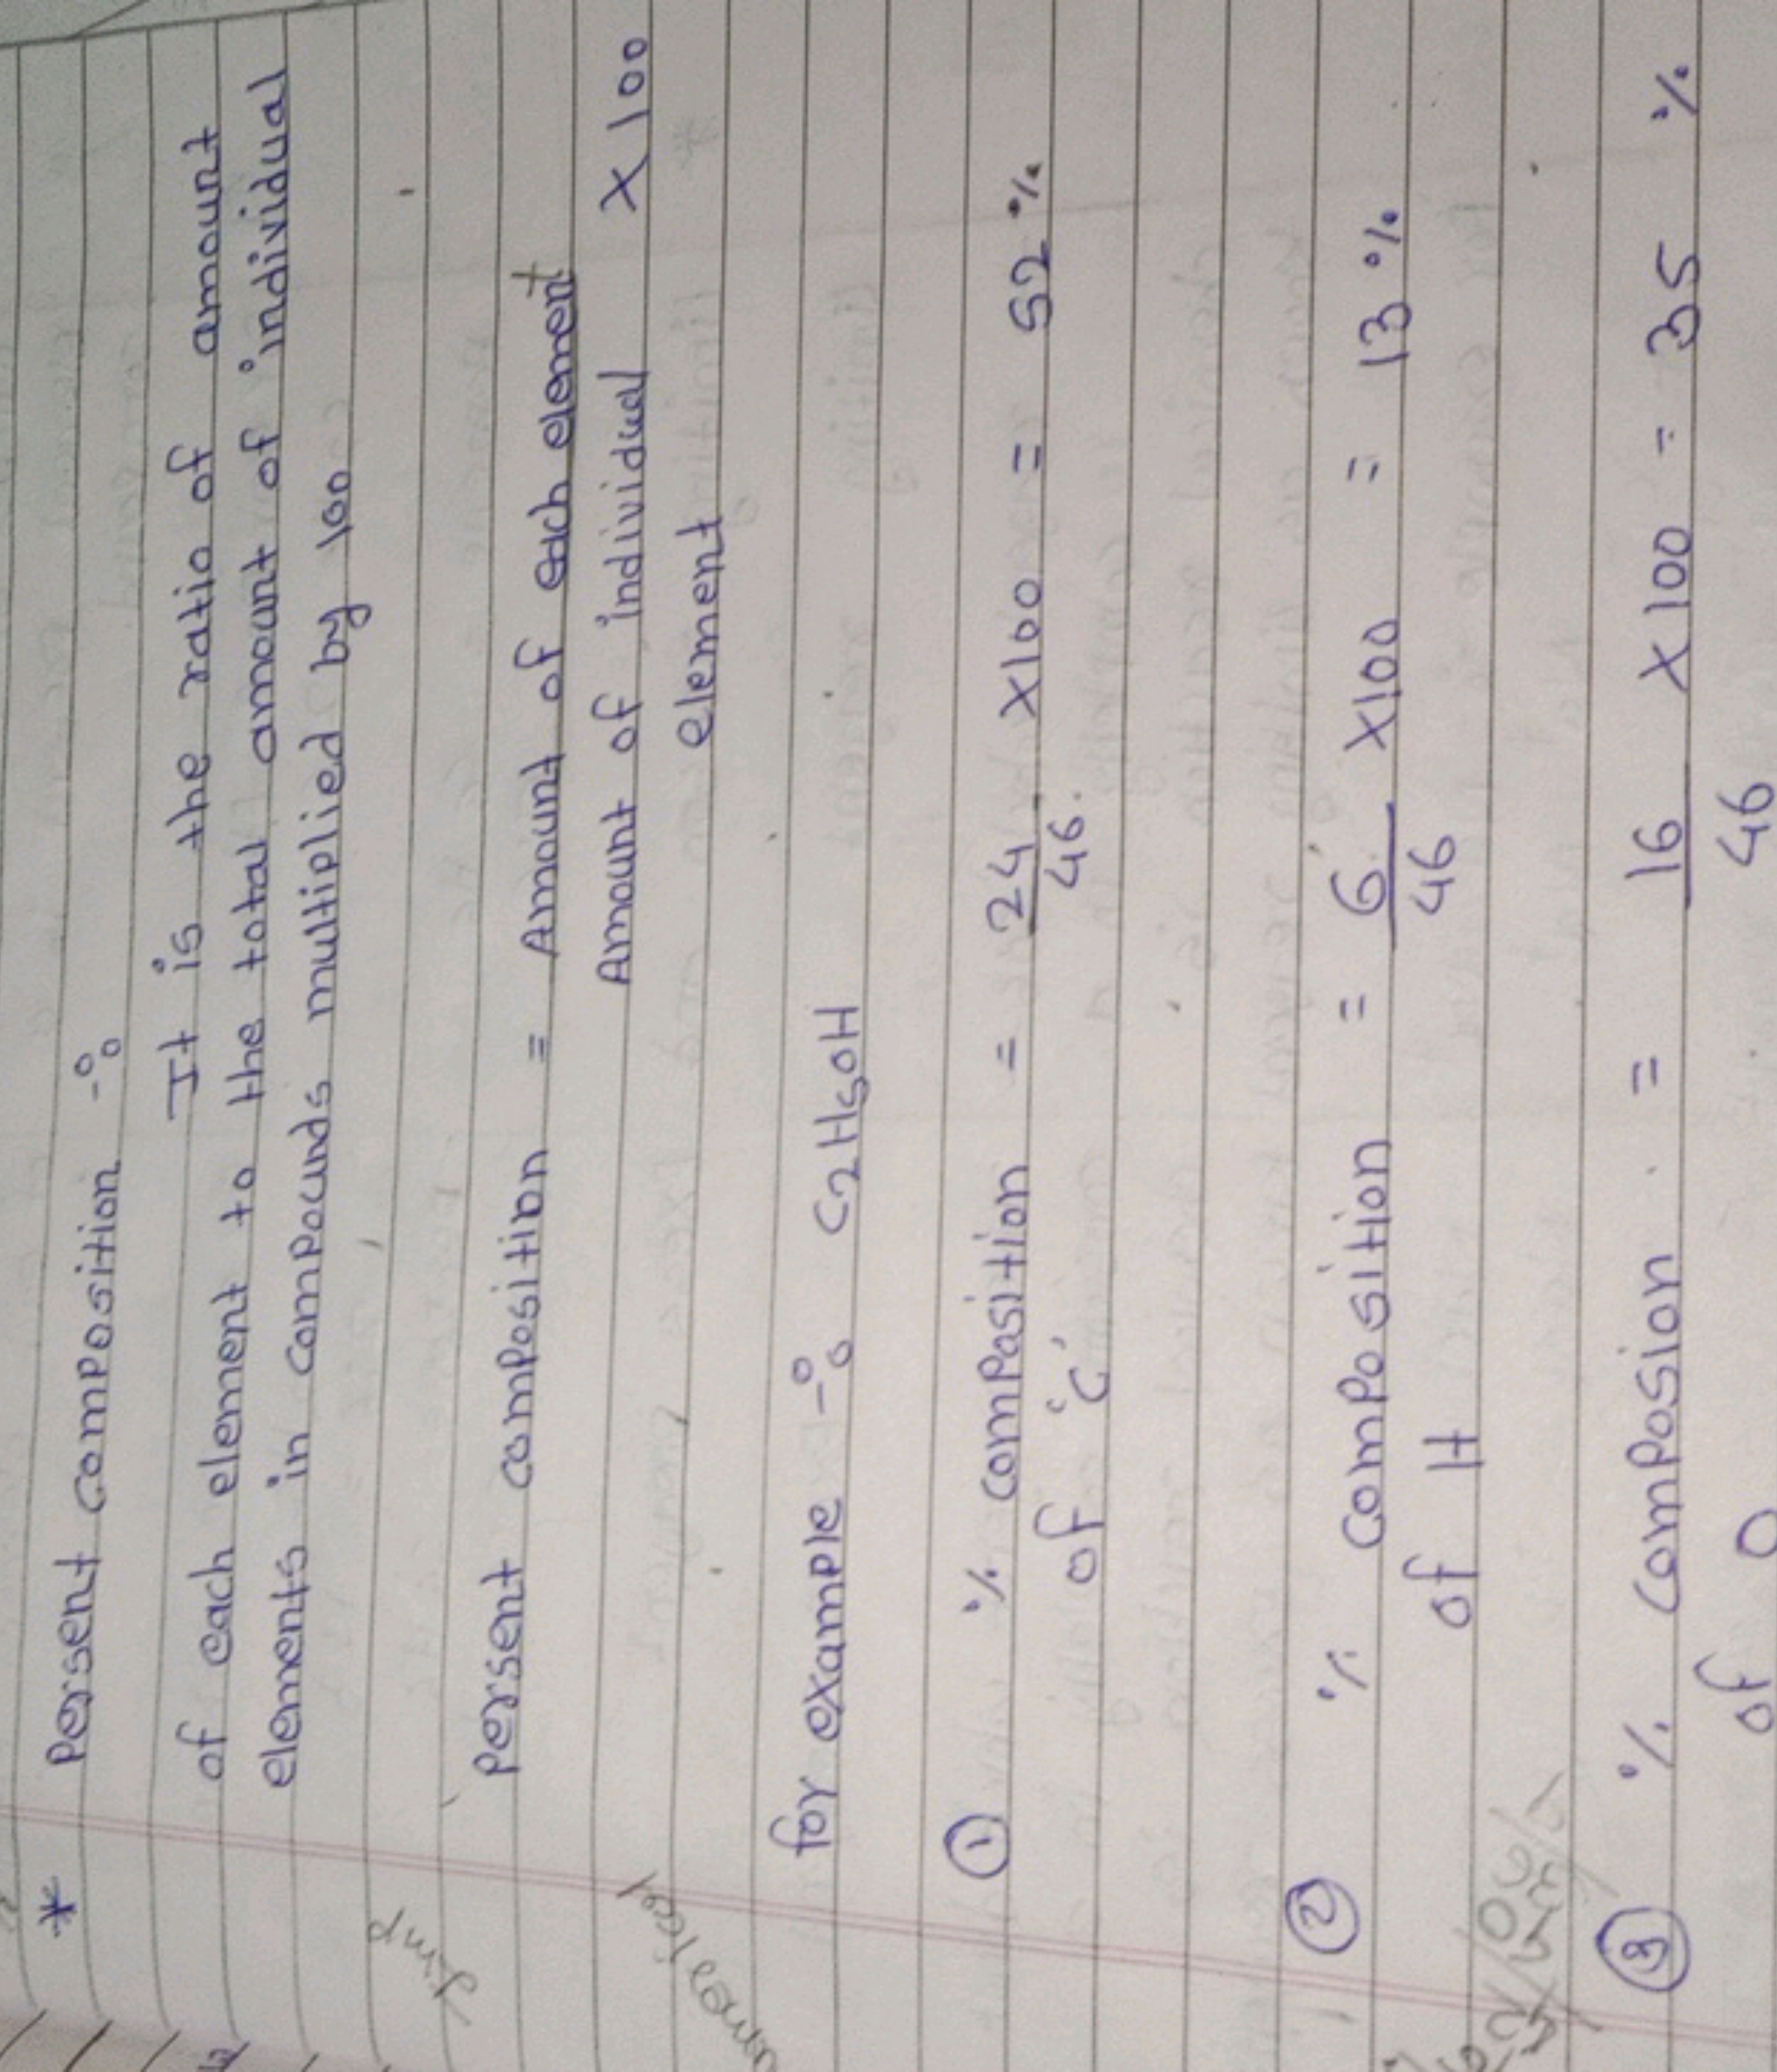 * Persent composition -:
It is the ratio of amount
of each element to the total amount of individual
elements in compounds multiplied by 100
persent composition = Amount of each element X 100
Amount of individual
element
for example -: C2H5OH
① % composition = 24/46 X100 = 52 %
of 'C'
② % composition = 6/46 X100 = 13 %
of H
③ % composion = 16/46 X100 = 35 %
of O